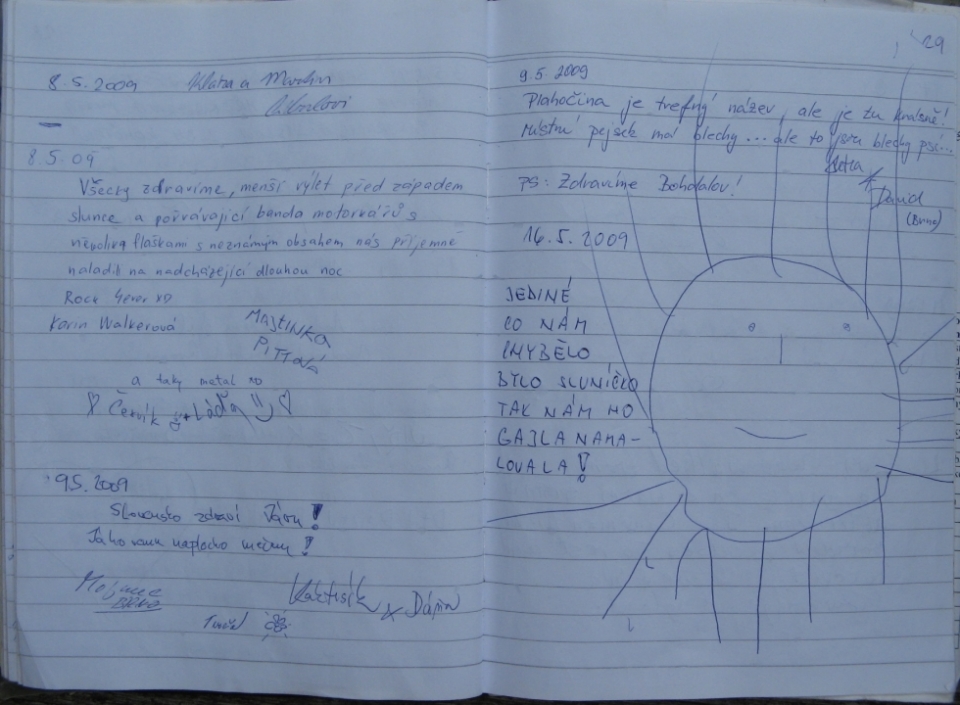 8.5.2009 Klára a Martin
8.5.09
Všechny zdravíme, menší výlet před západem
slunce a pořvávající banda motorkářů s
několika flaškami s neznámým obsahem nás příjemně
naladili na nadcházející dlouhou noc
Rock 4ever xD
Karin Walkerová
MAJTINKA
PITTOVÁ
a taky metal xD
Červík + Láďa
9.5.2009
Slovensko zdraví !
!
Kaktisík & Dáša
29
9.5.2009
Plahočina je trefný název, ale je tu krásně!
Místní pejsek má blechy ... ale to jsou blechy psí...
Petra
David
(Brno)
PS: Zdravíme Bohdalov!
16.5.2009
JEDINÉ
CO NÁM
CHYBĚLO
BYLO SLUNÍČKO
TAK NÁM HO
GAJLA NAMA-
LOVALA!